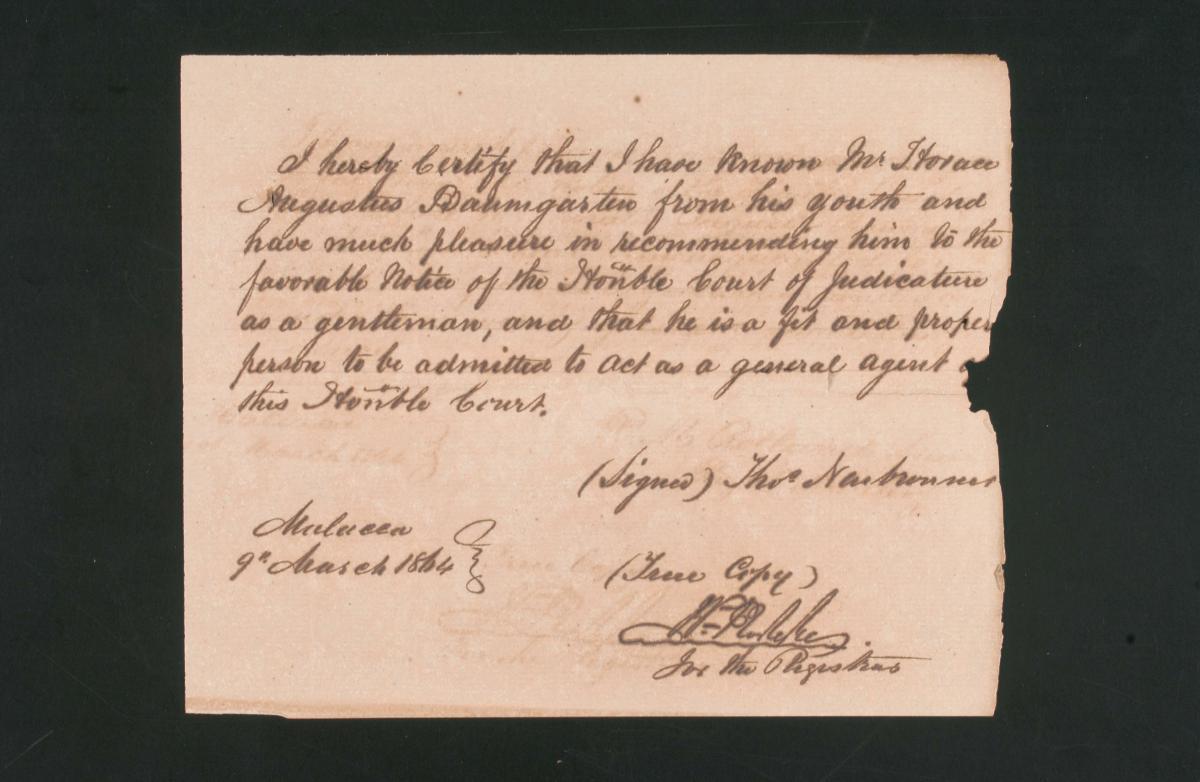 I hereby Certify that I have known Mr Horace
Augustus Baumgarten from his youth and
have much pleasure in recommending him to the
favorable Notice of the Honble Court of Judicature
as a gentleman, and that he is a fit and proper
person to be admitted to act as a general agent
this Honble Court.
(Signed) Thos Neubronner
Malacca
9th March 1864
(True Copy)
for the Registrar